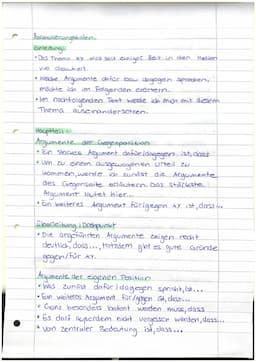 Formulierungshilfen:
Einleitung:
• Das Thema xy wird seit einiger Zeit in den Medien
viel diskutiert.
• Welche Argumente dafür bzw dagegen sprechen,
möchte ich im Folgenden erörtern.
• Im nachfolgenden Text werde ich mich mit diesem
Thema auseinandersetzen.
Hauptteil:
Argumente der Gegenposition
• Ein starkes Argument dafür/dagegen ist, dass
• Um zu einem ausgewogenen Urteil zu
kommen, werde ich zunächst die Argumente
der Gegenseite erläutern. Das stärkste
Argument lautet hier...
• Ein weiteres Argument für/gegen xy ist, dass...
Überleitung: Drehpunkt
• Die angeführten Argumente zeigen recht
deutlich, dass..., trotzdem gibt es gute Gründe
gegen/für xy.
Argumente der eigenen Position
• Was zunächst dafür/dagegen spricht, ist...
• Ein weiteres Argument für/gegen ist, dass...
• Ganz besonders betont werden muss, dass
• Es darf außerdem nicht vergessen werden, dass...
• Von zentraler Bedeutung ist, dass...